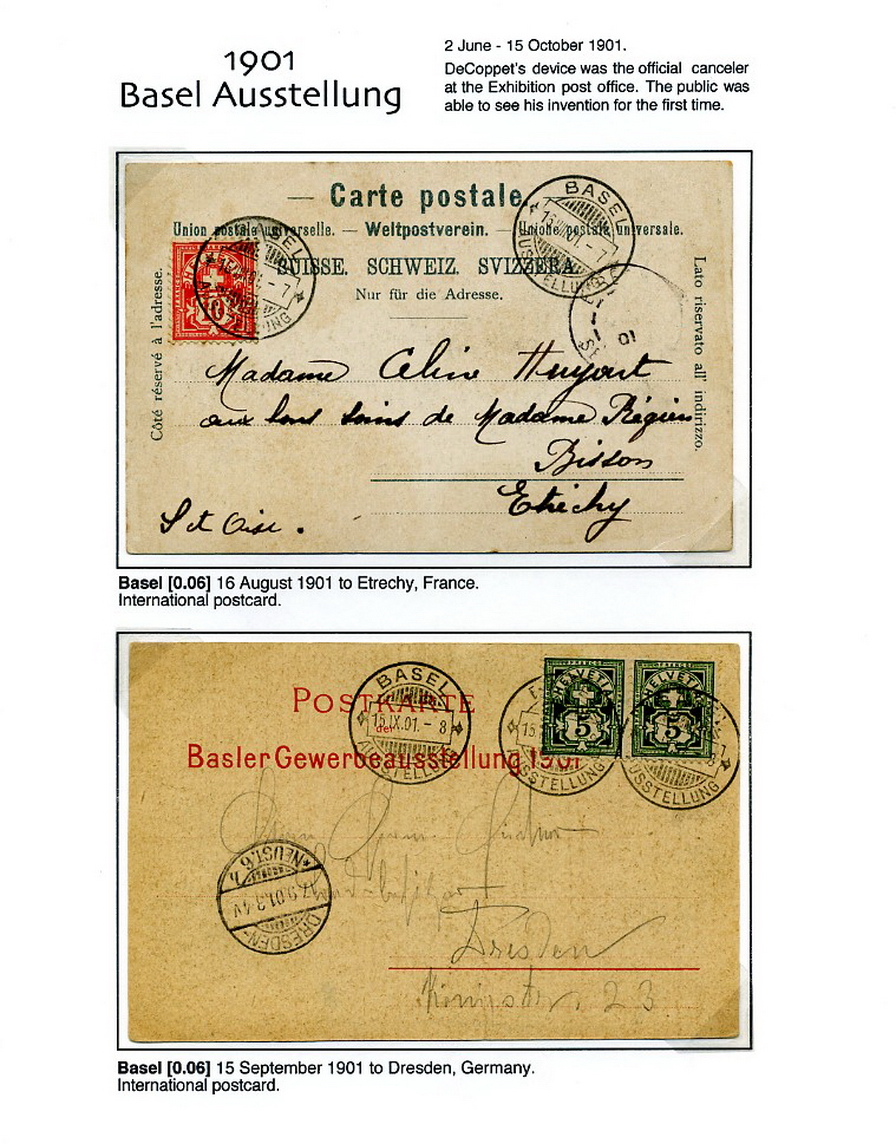 1901
Basel Ausstellung
2 June - 15 October 1901.
DeCoppet's device was the official canceler
at the Exhibition post office. The public was
able to see his invention for the first time.
— Carte postale.
Union postale universelle. — Weltpostverein. — Unione postale universale.
SUISSE. SCHWEIZ. SVIZZERA.
Nur für die Adresse.
Côté réservé à l'adresse.
Lato riservato all' indirizzo.
BASEL
AUSSTELLUNG
BASEL
AUSSTELLUNG
10
01
Madame Céline
aux bons soins de Madame
Bisson
Etréchy
S et Oise.
Basel [0.06] 16 August 1901 to Etrechy, France.
International postcard.
POSTKARTE
der
Basler Gewerbeausstellung 1901
BASEL
15.IX.01.-8
AUSSTELLUNG
HELVETIA
5
HELVETIA
5
AUSSTELLUNG
AUSSTELLUNG
DRESDEN-
NEUST.6.
17.9.01.
Dresden
23
Basel [0.06] 15 September 1901 to Dresden, Germany.
International postcard.